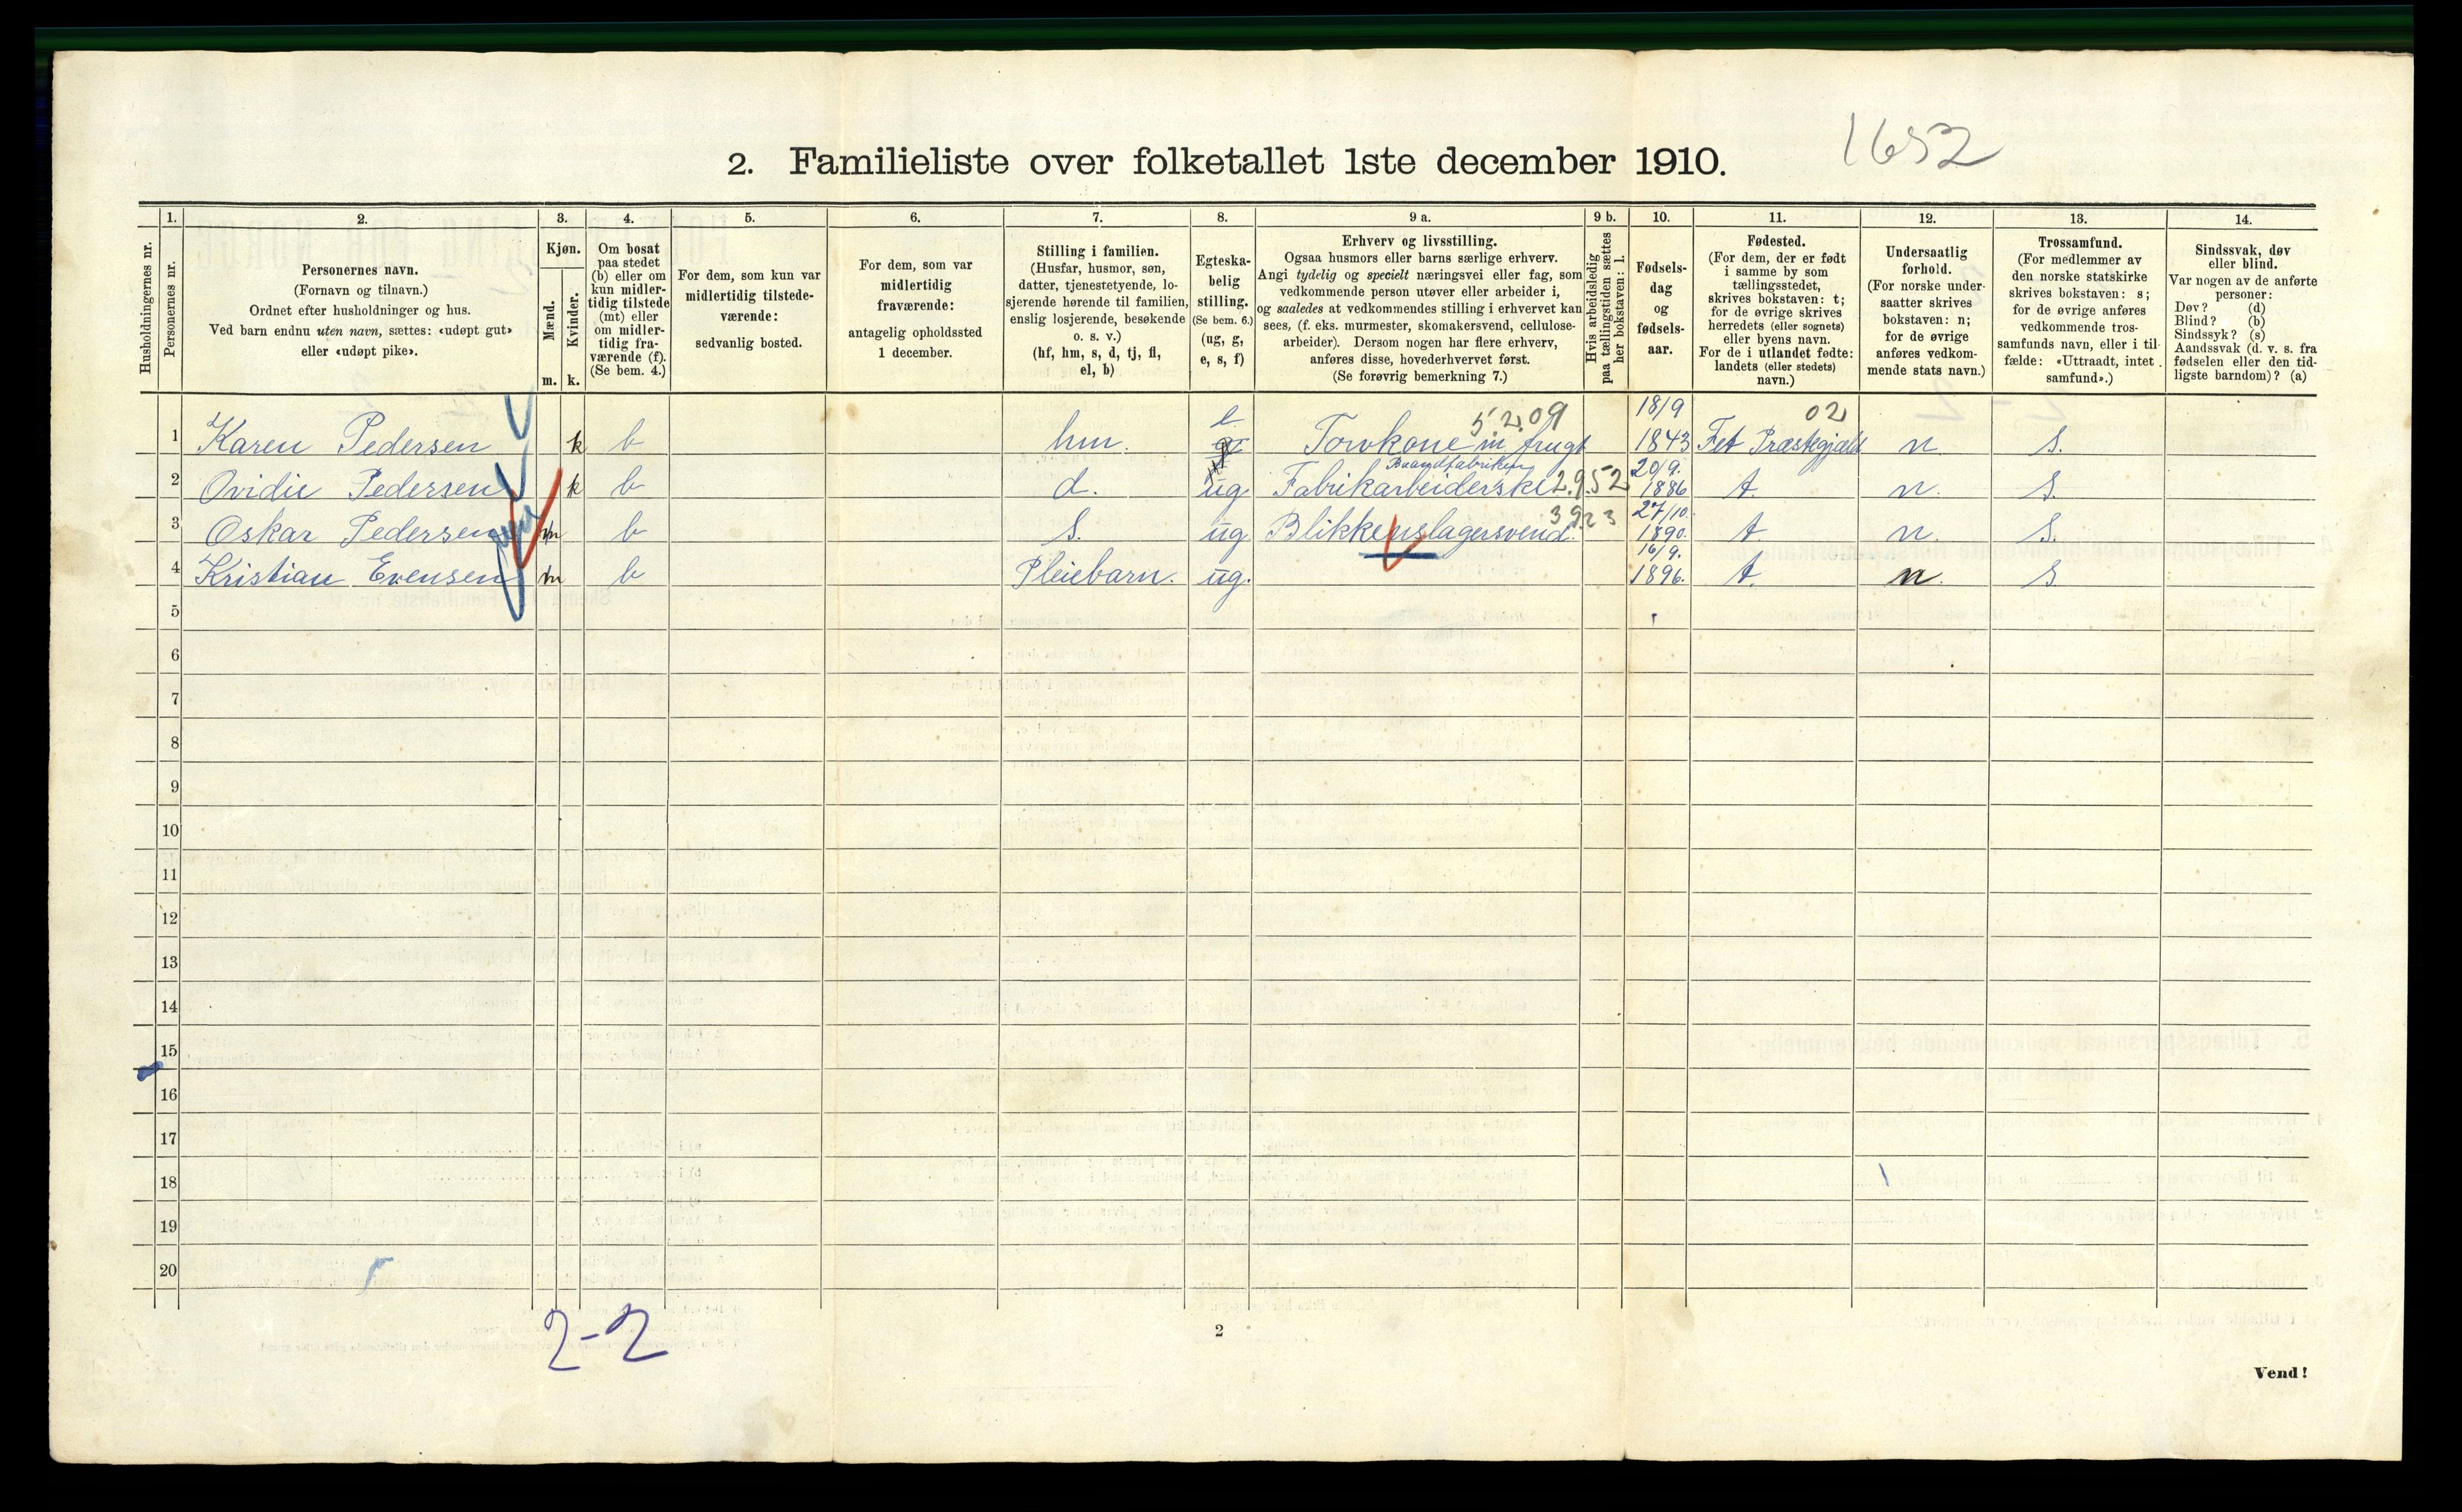 1652
2. Familieliste over folketallet 1ste december 1910.
Husholdningernes nr.
1. Personernes nr.
2. Personernes navn.
(Fornavn og tilnavn.)
Ordnet efter husholdninger og hus.
Ved barn endnu uten navn, sættes: «udøpt gut»
eller «udøpt pike».
3. Kjøn.
Mænd. m.
Kvinder. k.
4. Om bosat
paa stedet
(b) eller om
kun midler-
tidig tilstede
(mt) eller
om midler-
tidig fra-
værende (f).
(Se bem. 4.)
5. For dem, som kun var
midlertidig tilstede-
værende:
sedvanlig bosted.
6. For dem, som var
midlertidig
fraværende:
antagelig opholdssted
1 december.
7. Stilling i familien.
(Husfar, husmor, søn,
datter, tjenestetyende, lo-
sjerende hørende til familien,
enslig losjerende, besøkende
o. s. v.)
(hf, hm, s, d, tj, fl,
el, b)
8. Egteska-
belig
stilling.
(Se bem. 6.)
(ug, g,
e, s, f)
9 a. Erhverv og livsstilling.
Ogsaa husmors eller barns særlige erhverv.
Angi tydelig og specielt næringsvei eller fag, som
vedkommende person utøver eller arbeider i,
og saaledes at vedkommendes stilling i erhvervet kan
sees, (f. eks. murmester, skomakersvend, cellulose-
arbeider). Dersom nogen har flere erhverv,
anføres disse, hovederhvervet først.
(Se forøvrig bemerkning 7.)
9 b. Hvis arbeidsledig
paa tællingstiden sættes
her bokstaven: l.
10. Fødsels-
dag
og
fødsels-
aar.
11. Fødested.
(For dem, der er født
i samme by som
tællingsstedet,
skrives bokstaven: t;
for de øvrige skrives
herredets (eller sognets)
eller byens navn.
For de i utlandet fødte:
landets (eller stedets)
navn.)
12. Undersaatlig
forhold.
(For norske under-
saatter skrives
bokstaven: n;
for de øvrige
anføres vedkom-
mende stats navn.)
13. Trossamfund.
(For medlemmer av
den norske statskirke
skrives bokstaven: s;
for de øvrige anføres
vedkommende tros-
samfunds navn, eller i til-
fælde: «Uttraadt, intet
samfund».)
14. Sindssvak, døv
eller blind.
Var nogen av de anførte
personer:
Døv? (d)
Blind? (b)
Sindssyk? (s)
Aandssvak (d. v. s. fra
fødselen eller den tid-
ligste barndom)? (a)
1 Karen Pedersen k b hm. e Torvkone m frugt 5.2.09 18/9 1843 Fet Præstegjæld 02 n s.
2 Ovidie Pedersen k b d. ug Fabrikarbeiderske 2.9.52 20/9. 1886 t. n. s.
3 Oskar Pedersen m b s. ug Blikkenslagersvend. 3923 27/10. 1890. t n. s.
4 Kristian Evensen m b Pleiebarn. ug. 16/9. 1896. t. n. s
5
6
7
8
9
10
11
12
13
14
15
16
17
18
19
20
2-2
2
Vend!